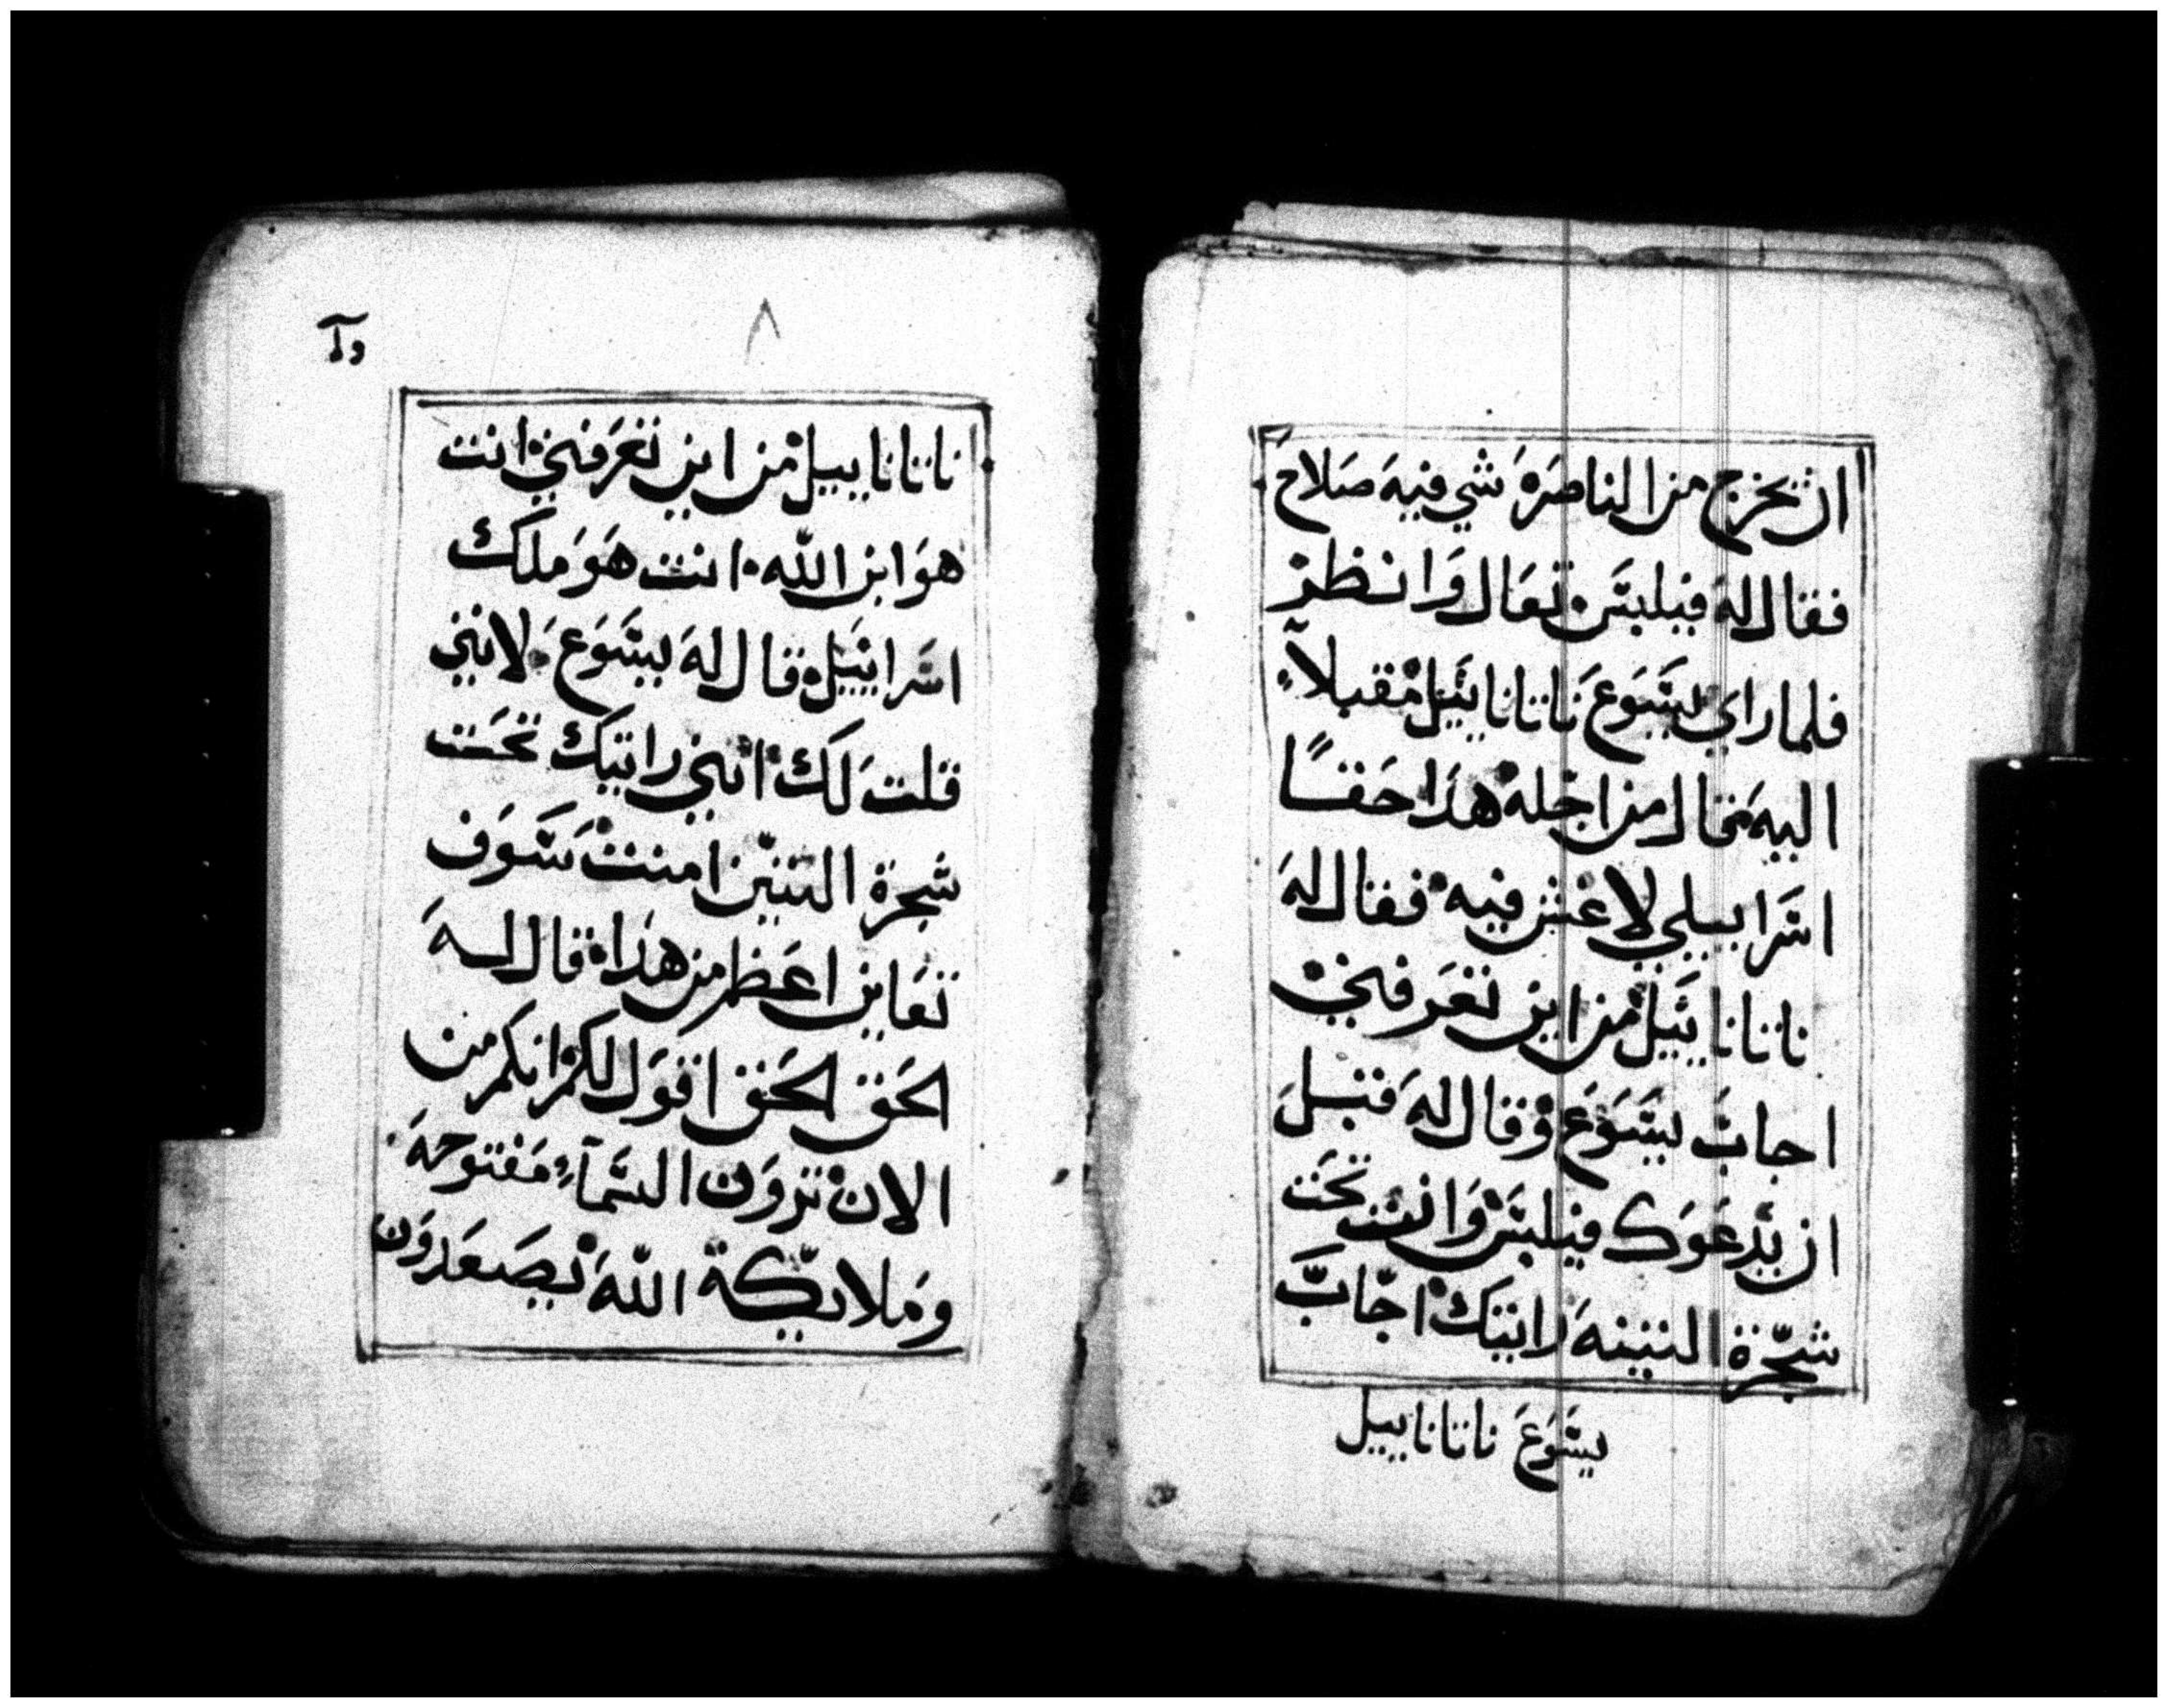 ان يخرج من الناصرة شي فيه صلاح
فقال له فيلبس تعال وانظر
فلما راي يسوع ناتانائيل مقبلاً
اليه فقال من اجله هذا حقاً
اسراييلي لا غش فيه فقال له
ناتاناييل من اين تعرفني
اجاب يسوع وقال له قبل
ان يدعوك فيلبس وانت تحت
شجرة التينه رايتك اجاب
يسوع ناتاناييل
٨
ناتاناييل من اين تعرفني انت
هو ابن الله انت هو ملك
اسراييل قال له يسوع لانني
قلت لك انني رايتك تحت
شجرة التين امنت سوف
تعاين اعظم من هذا قال له
الحق الحق اقول لكم انكم من
الان ترون السمآء مفتوحة
وملايكة الله يصعدون